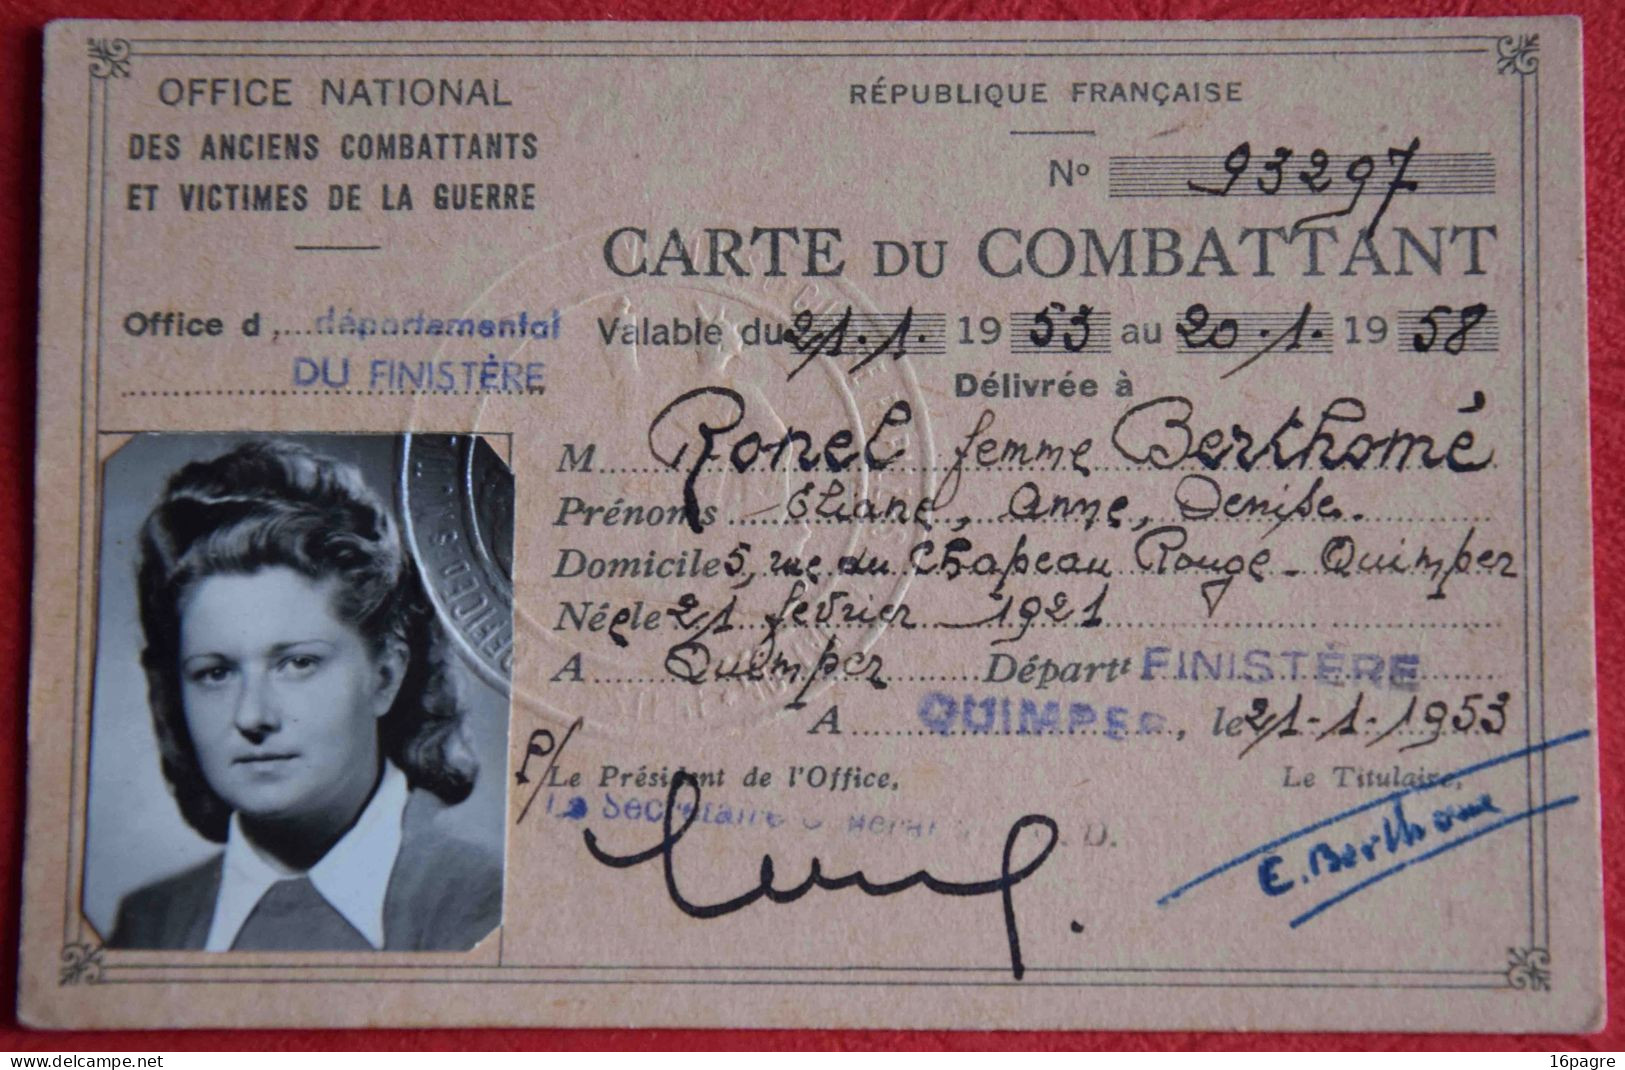 OFFICE NATIONAL
DES ANCIENS COMBATTANTS
ET VICTIMES DE LA GUERRE
Office d départemental
DU FINISTÈRE
RÉPUBLIQUE FRANÇAISE
No 93297
CARTE DU COMBATTANT
Valable du 21.1. 19 53 au 20.1. 19 58
Délivrée à
M Ronel femme Berthomé
Prénoms Eliane, Anne, Denise.
Domicile 5, rue du Chapeau Rouge - Quimper
Née le 21 fevrier 1921
A Quimper Départt FINISTÈRE
A QUIMPER, le 21-1-1953
P/ Le Président de l'Office, Le Titulaire,
Le Secrétaire
E. Berthome
16pagre